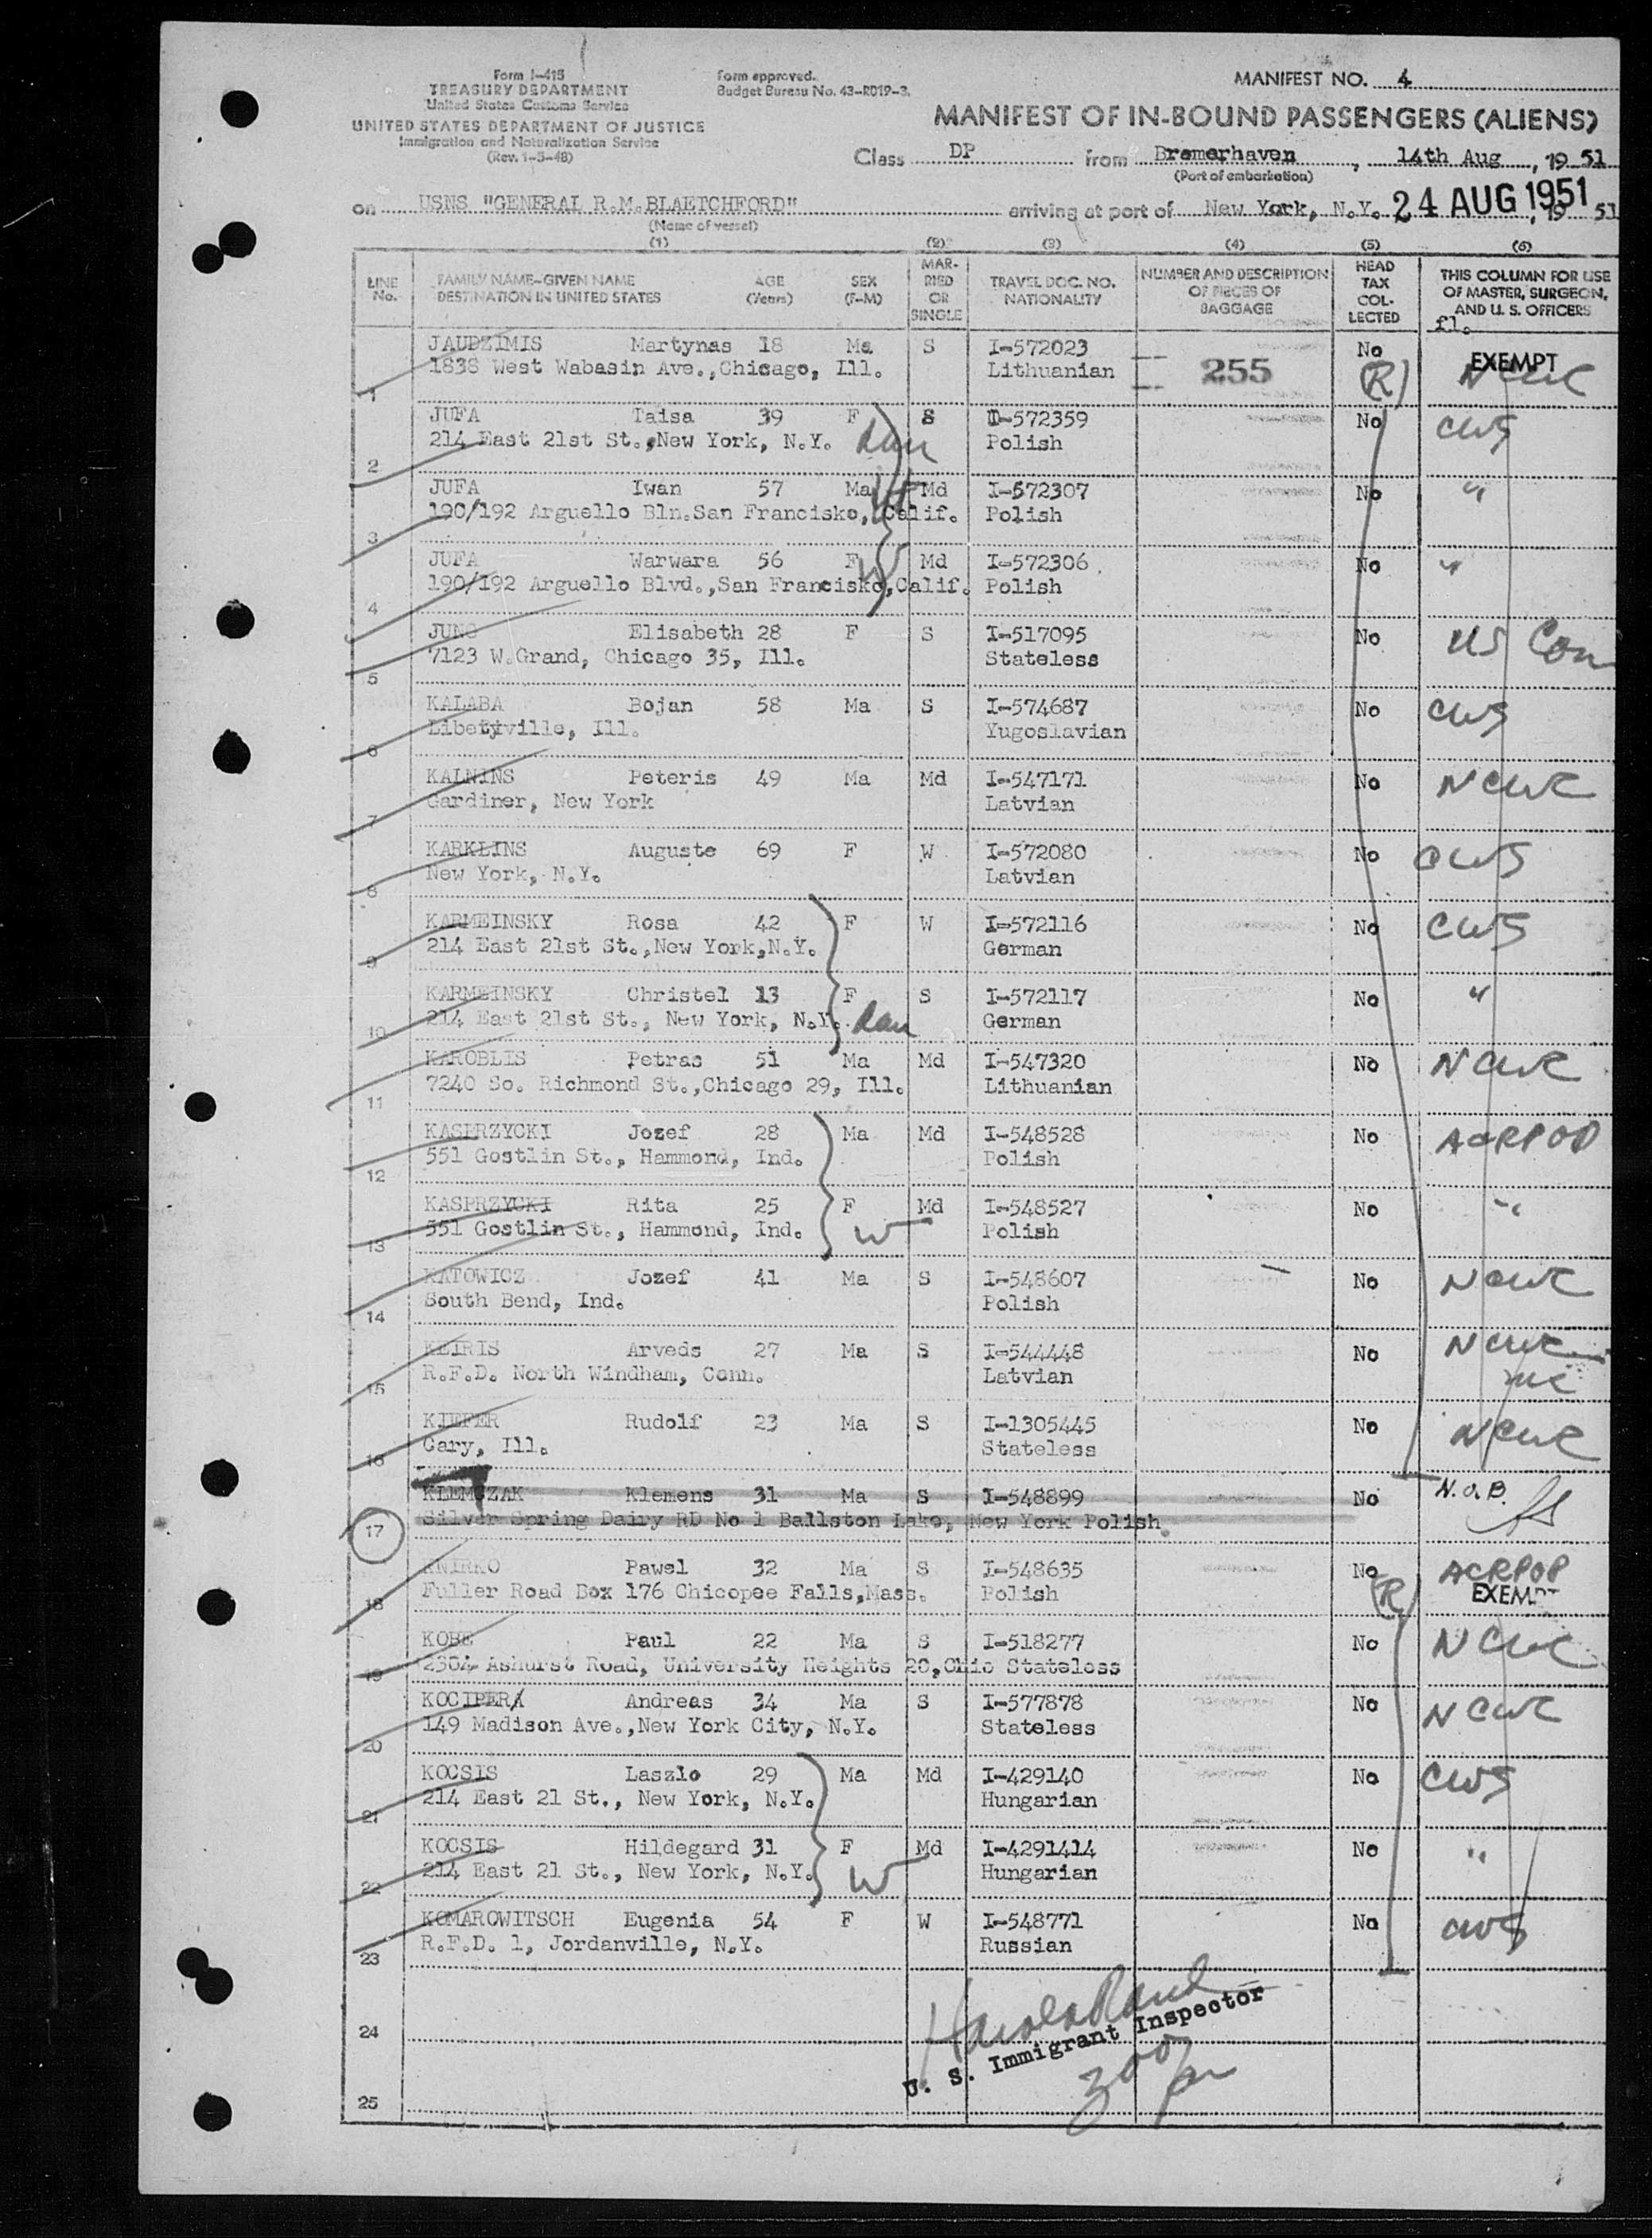 Form I-415
TREASURY DEPARTMENT
United States Customs Service
UNITED STATES DEPARTMENT OF JUSTICE
Immigration and Naturalization Service
(Rev. 1-5-48)
Form approved.
Budget Bureau No. 43-R019-3.
MANIFEST NO. 4
MANIFEST OF IN-BOUND PASSENGERS (ALIENS)
Class DP from Bremerhaven, 14th Aug, 19 51
(Port of embarkation)
on USNS "GENERAL R.M.BLAETCHFORD" arriving at port of New York, N.Y. 24 AUG 1951, 19 51
(Name of vessel)
(1) (2) (3) (4) (5) (6)
LINE No. FAMILY NAME-GIVEN NAME DESTINATION IN UNITED STATES AGE (Years) SEX (F-M) MARRIED OR SINGLE TRAVEL DOC. NO. NATIONALITY NUMBER AND DESCRIPTION OF PIECES OF BAGGAGE HEAD TAX COLLECTED THIS COLUMN FOR USE OF MASTER, SURGEON, AND U. S. OFFICERS
fl.
JAUDZIMIS Martynas 18 Ma S I-572023 No EXEMPT
1838 West Wabasin Ave.,Chicago, Ill. Lithuanian 255 (R) NCWC
1
JUFA Taisa 39 F S I-572359 No CWS
214 East 21st St.,New York, N.Y. Polish
2
JUFA Iwan 57 Ma Md I-572307 No "
190/192 Arguello Bln.San Francisko, Calif. Polish
3
JUFA Warwara 56 F W Md I-572306 No "
190/192 Arguello Blvd.,San Francisko,Calif. Polish
4
JUNG Elisabeth 28 F S I-517095 No US Com
7123 W.Grand, Chicago 35, Ill. Stateless
5
KALABA Bojan 58 Ma S I-574687 No CWS
Libetyville, Ill. Yugoslavian
6
KALNINS Peteris 49 Ma Md I-547171 No NCWC
Gardiner, New York Latvian
7
KARKLINS Auguste 69 F W I-572080 No CWS
New York, N.Y. Latvian
8
KARMEINSKY Rosa 42 F W I-572116 No CWS
214 East 21st St.,New York,N.Y. German
9
KARMEINSKY Christel 13 F S I-572117 No "
214 East 21st St., New York, N.Y. German
10
KAROBLIS Petras 51 Ma Md I-547320 No NCWC
7240 So. Richmond St.,Chicago 29, Ill. Lithuanian
11
KASPRZYCKI Jozef 28 Ma Md I-548528 No ACRPOD
551 Gostlin St., Hammond, Ind. Polish
12
KASPRZYCKI Rita 25 F Md I-548527 No "
551 Gostlin St., Hammond, Ind. W Polish
13
KATOWICZ Jozef 41 Ma S I-548607 No NCWC
South Bend, Ind. Polish
14
KEIRIS Arveds 27 Ma S I-544448 No NCWC
R.F.D. North Windham, Conn. Latvian
15
KIEFER Rudolf 23 Ma S I-1305445 No NCWC
Gary, Ill. Stateless
16
KLEMCZAK Klemens 31 Ma S I-548899 No N.O.B.
Silver Spring Dairy RD No 1 Ballston Lake, New York Polish
17
KNIRKO Pawel 32 Ma S I-548635 No ACRPOP
Fuller Road Box 176 Chicopee Falls,Mass. Polish (R) EXEMPT
18
KOBE Paul 22 Ma S I-518277 No NCWC
2304 Ashurst Road, University Heights 20,Ohio Stateless
19
KOCIPER Andreas 34 Ma S I-577878 No NCWC
149 Madison Ave.,New York City, N.Y. Stateless
20
KOCSIS Laszlo 29 Ma Md I-429140 No CWS
214 East 21 St., New York, N.Y. Hungarian
21
KOCSIS Hildegard 31 F Md I-4291414 No "
214 East 21 St., New York, N.Y. W Hungarian
22
KOMAROWITSCH Eugenia 54 F W I-548771 No CWS
R.F.D. 1, Jordanville, N.Y. Russian
23
24
U. S. Immigrant Inspector
25